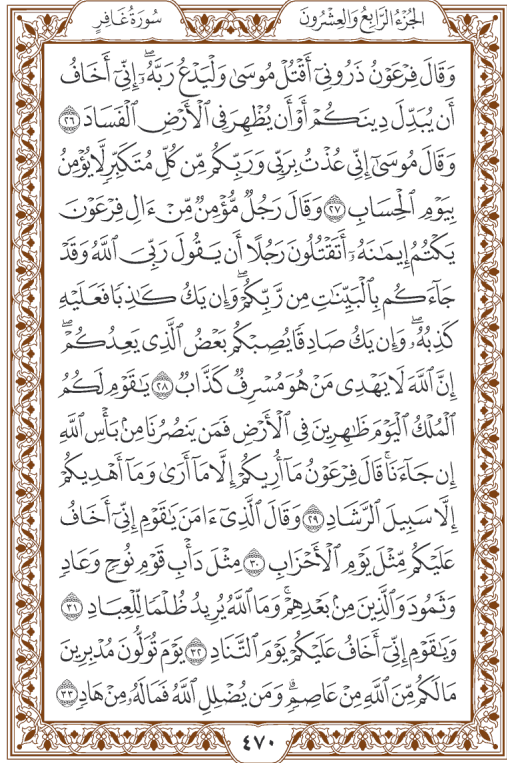 الجزء الرابع والعشرون سورة غافر
وَقَالَ فِرْعَوْنُ ذَرُونِيٓ أَقْتُلْ مُوسَىٰ وَلْيَدْعُ رَبَّهُۥٓۖ إِنِّيٓ أَخَافُ
أَن يُبَدِّلَ دِينَكُمْ أَوْ أَن يُظْهِرَ فِي ٱلْأَرْضِ ٱلْفَسَادَ ٢٦
وَقَالَ مُوسَىٰٓ إِنِّي عُذْتُ بِرَبِّي وَرَبِّكُم مِّن كُلِّ مُتَكَبِّرٍ لَّا يُؤْمِنُ
بِيَوْمِ ٱلْحِسَابِ ٢٧ وَقَالَ رَجُلٌ مُّؤْمِنٌ مِّنْ ءَالِ فِرْعَوْنَ
يَكْتُمُ إِيمَٰنَهُۥٓ أَتَقْتُلُونَ رَجُلًا أَن يَقُولَ رَبِّيَ ٱللَّهُ وَقَدْ
جَآءَكُم بِٱلْبَيِّنَٰتِ مِن رَّبِّكُمْۖ وَإِن يَكُ كَٰذِبًا فَعَلَيْهِ
كَذِبُهُۥۖ وَإِن يَكُ صَادِقًا يُصِبْكُم بَعْضُ ٱلَّذِي يَعِدُكُمْۖ
إِنَّ ٱللَّهَ لَا يَهْدِي مَنْ هُوَ مُسْرِفٌ كَذَّابٌ ٢٨ يَٰقَوْمِ لَكُمُ
ٱلْمُلْكُ ٱلْيَوْمَ ظَٰهِرِينَ فِي ٱلْأَرْضِ فَمَن يَنصُرُنَا مِنۢ بَأْسِ ٱللَّهِ
إِن جَآءَنَاۚ قَالَ فِرْعَوْنُ مَآ أُرِيكُمْ إِلَّا مَآ أَرَىٰ وَمَآ أَهْدِيكُمْ
إِلَّا سَبِيلَ ٱلرَّشَادِ ٢٩ وَقَالَ ٱلَّذِيٓ ءَامَنَ يَٰقَوْمِ إِنِّيٓ أَخَافُ
عَلَيْكُم مِّثْلَ يَوْمِ ٱلْأَحْزَابِ ٣٠ مِثْلَ دَأْبِ قَوْمِ نُوحٍ وَعَادٍ
وَثَمُودَ وَٱلَّذِينَ مِنۢ بَعْدِهِمْۚ وَمَا ٱللَّهُ يُرِيدُ ظُلْمًا لِّلْعِبَادِ ٣١
وَيَٰقَوْمِ إِنِّيٓ أَخَافُ عَلَيْكُمْ يَوْمَ ٱلتَّنَادِ ٣٢ يَوْمَ تُوَلُّونَ مُدْبِرِينَ
مَا لَكُم مِّنَ ٱللَّهِ مِنْ عَاصِمٍۗ وَمَن يُضْلِلِ ٱللَّهُ فَمَا لَهُۥ مِنْ هَادٍ ٣٣
٤٧٠